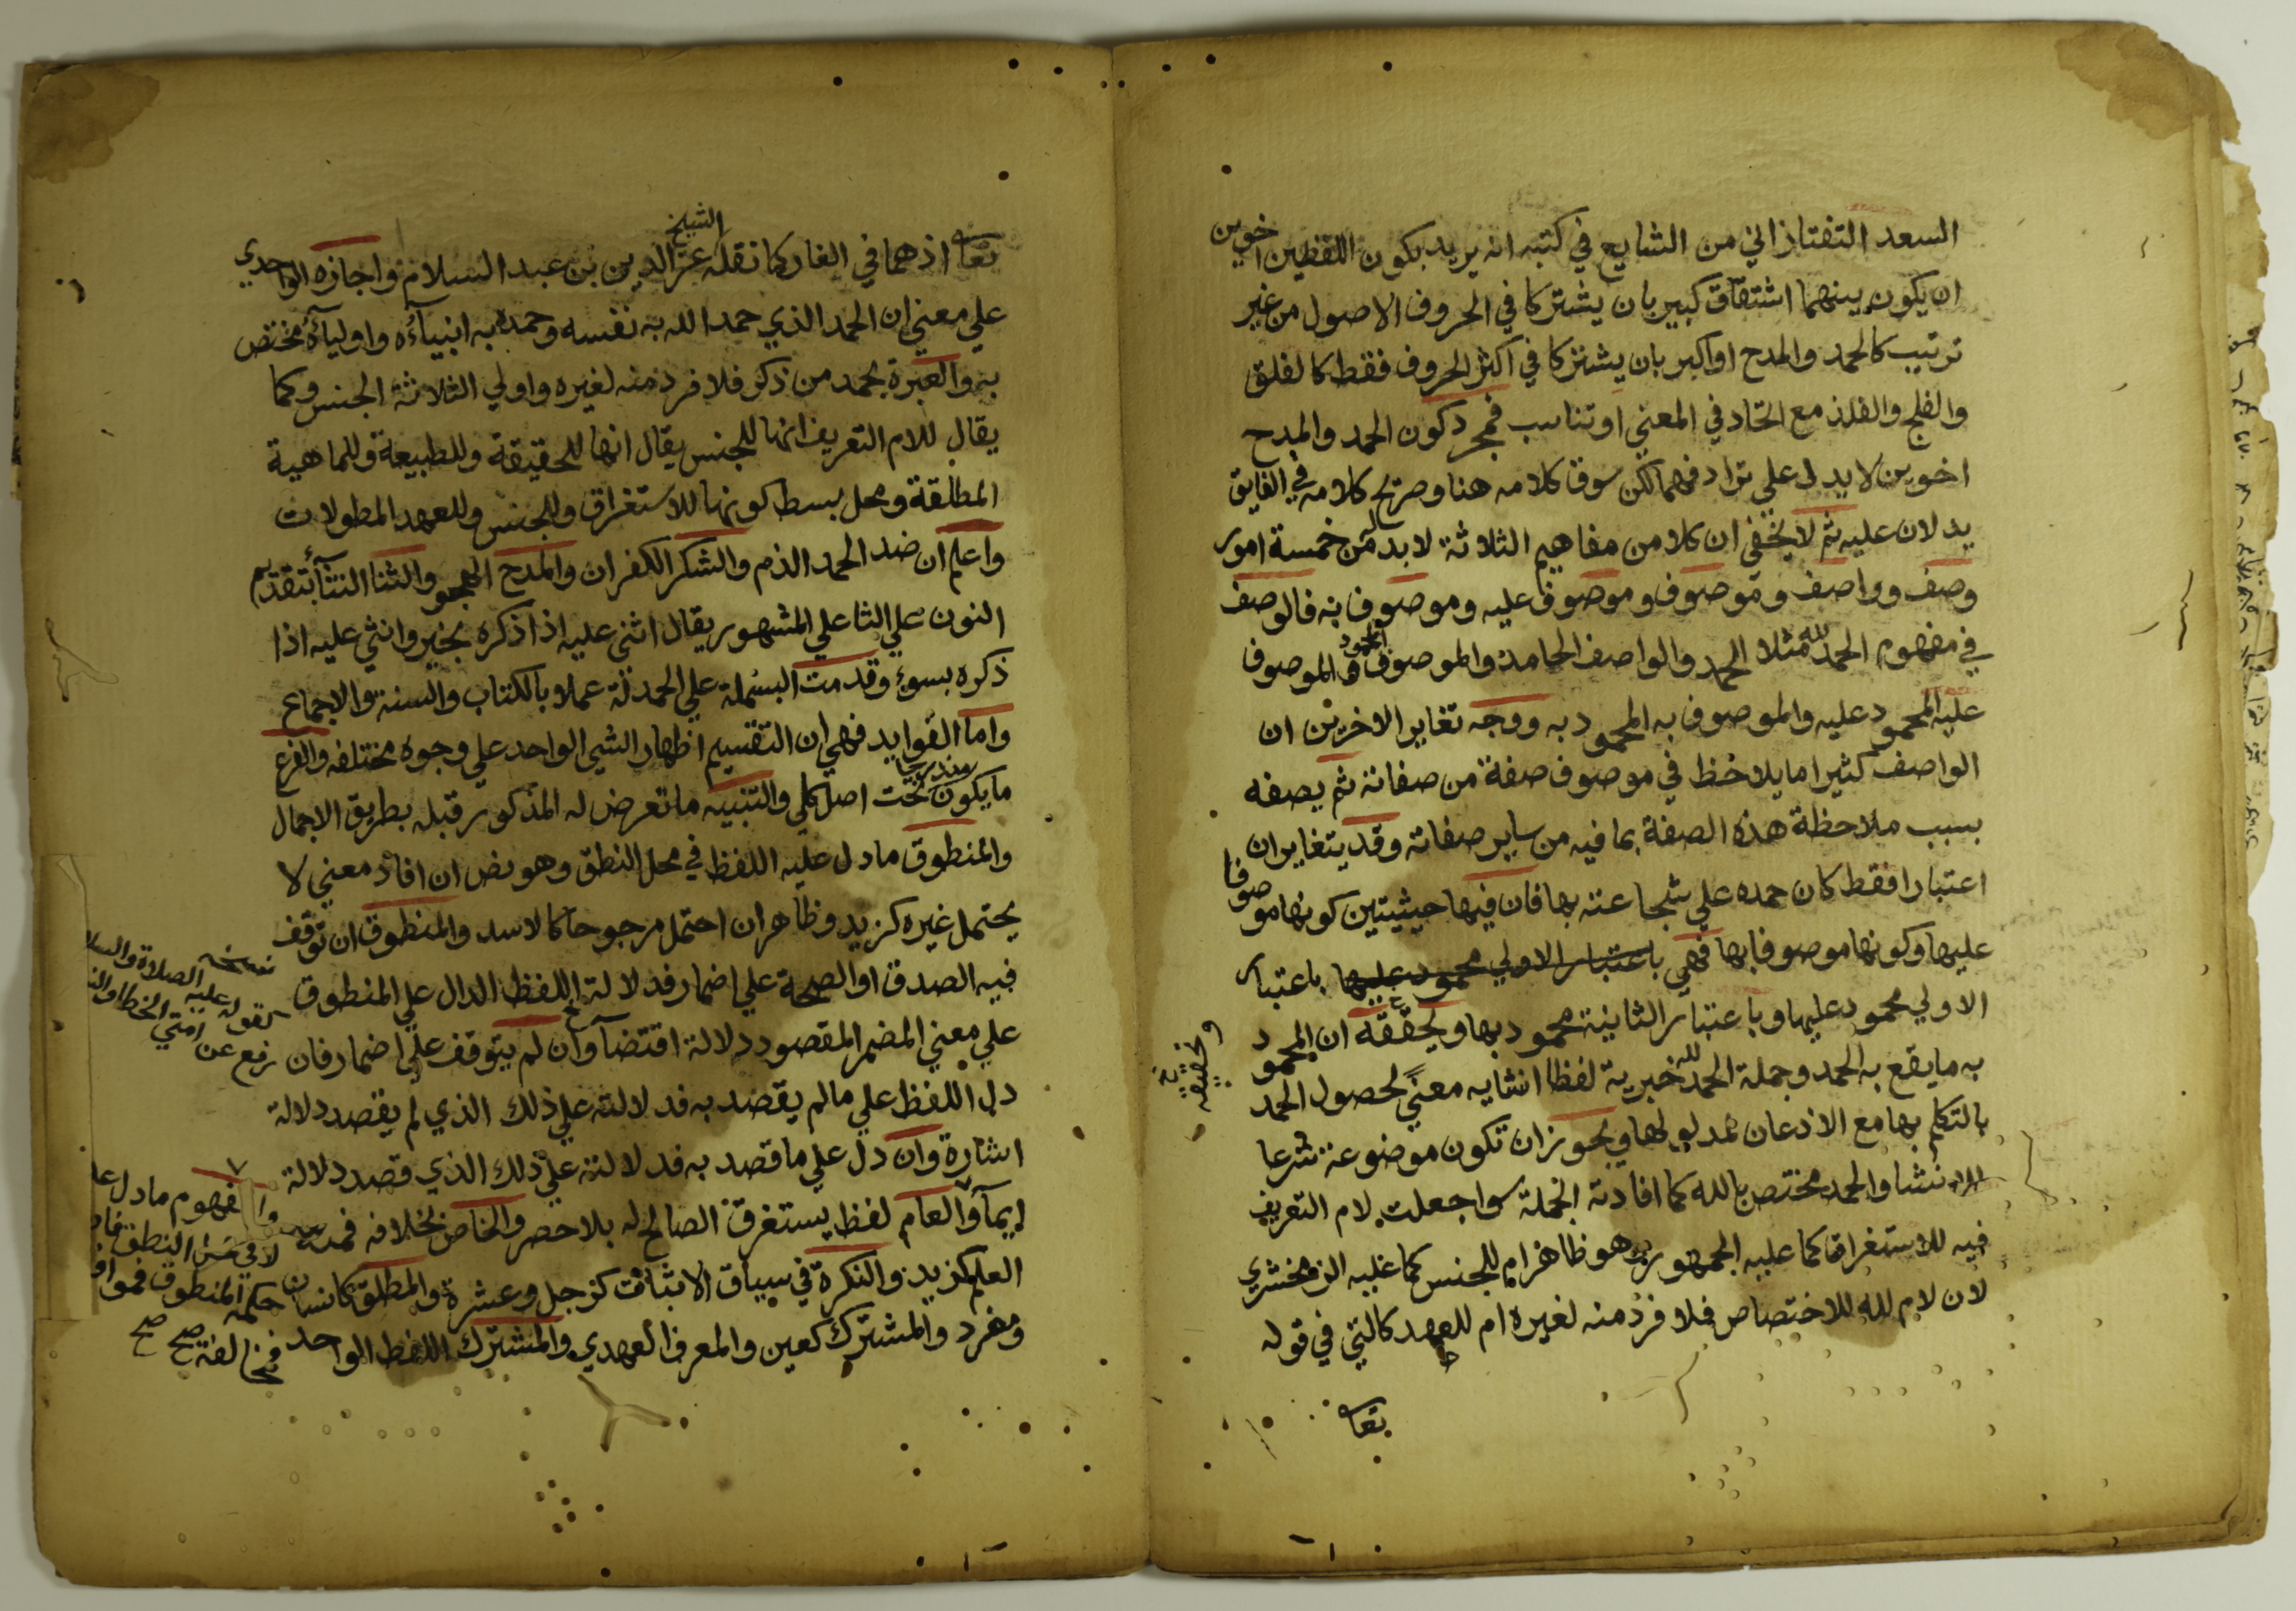 السعد التفتازاني من الشايع في كتبه انه يريد بكون اللفظين اخوين
ان يكون بينهما اشتقاق كبير بان يشتركا في الحروف الاصول من غير
ترتيب كالحمد والمدح او اكبر بان يشتركا في اكثر الحروف فقط كالفلق
والفلج والفلذ مع اتحاد في المعني او تناسب فمجرد كون الحمد والمدح
اخوين لا يدل علي ترادفهما لكن سوق كلامه هنا وصريح كلامه في الفايق
يدلان عليه ثم لا يخفي ان كلا من مفاهيم الثلاثة لا بد له من خمسة امور
وصف وواصف وموصوف وموصوف عليه وموصوف به فالوصف
في مفهوم الحمد لله مثلا الحمد والواصف الحامد والموصوف المحمود والموصوف
عليه المحمود عليه والموصوف به المحمود به ووجه تغاير الاخرين ان
الواصف كثيرا ما يلاحظ في موصوف صفة من صفاته ثم يصفه
بسبب ملاحظة هذه الصفة بما فيه من ساير صفاته وقد يتغايران
اعتبارا فقط كان حمده علي شجاعته بها فان فيها حيثيتين كونها موصوفا
عليها وكونها موصوفا بها فهي باعتبار الاولي محمود عليها باعتبار
الاولي محمود عليها وباعتبار الثانية محمود بها ويحققه ان المحمود
به ما يقع به الحمد وجملة الحمد لله خبرية لفظا انشايه معنًي لحصول الحمد
بالتكلم بها مع الاذعان لمدلولها ويجوز ان تكون موضوعة شرعا
للانشا والحمد مختص بالله كما افادته الجملة سوا جعلت لام التعريف
فيه للاستغراق كما عليه الجمهور وهو ظاهر ام للجنس كما عليه الزمخشري
لان لام لله للاختصاص فلا فرد منه لغيره ام للعهد كالتي في قوله
تعا
وتحقيقه
تعا اذ هما في الغار كما نقله الشيخ عز الدين بن عبد السلام واجازه الواحدي
علي معني ان الحمد الذي حمد الله به نفسه وحمده به انبيآءه واوليآءه مختص
به والعبرة بحمد من ذكر فلا فرد منه لغيره واولي الثلاثة الجنس وكما
يقال للام التعريف انها للجنس يقال انها للحقيقة وللطبيعة وللماهية
المطلقة ومحل بسط كونها للاستغراق وللجنس وللعهد المطولات
واعلم ان ضد الحمد الذم والشكر الكفران والمدح الهجو والثنا النثآ بتقديم
النون علي الثا علي المشهور يقال اثني عليه اذا ذكره بخير وانثي عليه اذا
ذكره بسوء وقدمت البسملة علي الحمدلة عملا بالكتاب والسنة والاجماع
واما الفوايد فهي ان التقسيم اظهار الشي الواحد علي وجوه مختلفه والفرع
ما يكون مندرجا تحت اصل كلي والتنبيه ما تعرض له المذكور قبله بطريق الاجمال
والمنطوق ما دل عليه اللفظ في محل النطق وهو نص ان افاد معني لا
يحتمل غيره كزيد وظاهر ان احتمل مرجوحا كالاسد والمنطوق ان توقف
فيه الصدق او الصحة علي اضمار فدلالة اللفظ الدال علي المنطوق
علي معني المضمر المقصود دلالة اقتضآ وان لم يتوقف علي اضمار فان
دل اللفظ علي ما لم يقصد به فدلالته علي ذلك الذي لم يقصد دلالة
اشارة وان دل علي ما قصد به فدلالته علي ذلك الذي قصد دلالة
ايمآ والعام لفظ يستغرق الصالح له بلا حصر والخاص بخلافه فمنه
العلم كزيد والنكرة في سياق الاثبات كرجل وعشرة والمطلق كانسان
ومفرد والمشترك كعين والمعرف العهدي والمشترك اللفظ الواحد
كقوله عليه الصلاة والسلا
رفع عن امتي الخطا والن
والمفهوم ما دل علا
لا في محل النطق فان
حكمه المنطوق فموافق
فمخالفة صح صح